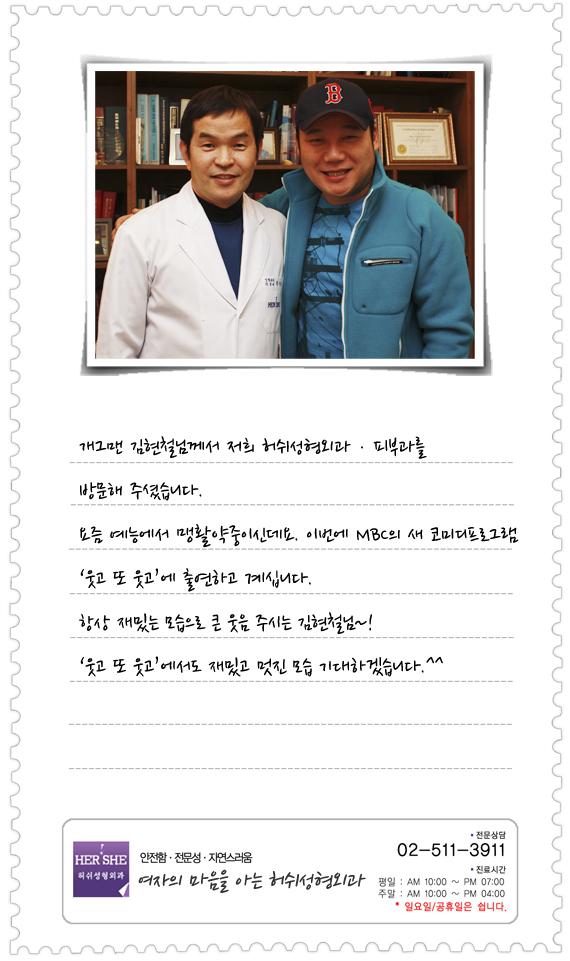 B
HER SHE
개그맨 김현철님께서 저희 허쉬성형외과 · 피부과를
방문해 주셨습니다.
요즘 예능에서 맹활약중이신데요. 이번에 MBC의 새 코미디프로그램
'웃고 또 웃고'에 출연하고 계십니다.
항상 재밌는 모습으로 큰 웃음 주시는 김현철님~!
'웃고 또 웃고'에서도 재밌고 멋진 모습 기대하겠습니다.^^
HER SHE
허쉬성형외과
안전함 · 전문성 · 자연스러움
여자의 마음을 아는 허쉬성형외과
전문상담
02-511-3911
진료시간
평일 : AM 10:00 ~ PM 07:00
주말 : AM 10:00 ~ PM 04:00
* 일요일/공휴일은 쉽니다.